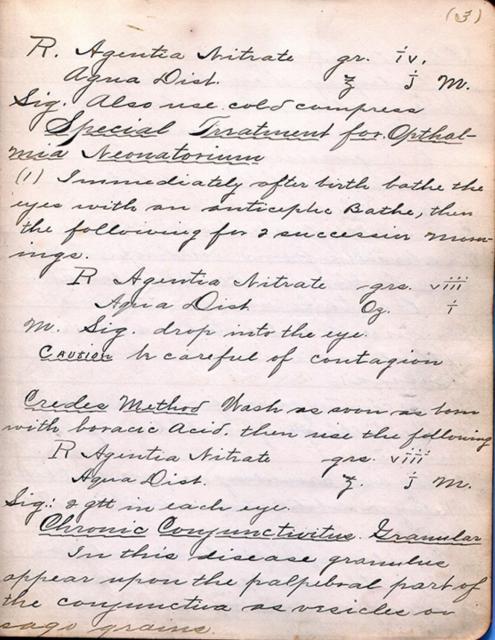 (3)
R. Agentia Nitrate gr. iv.
Aqua Dist. ℥ j M.
Sig. Also use cold compress
Special Trratment for Opthal-
mia Neonatorium
(1) Immediately after birth bathe the
eyes with an anticeptic Bathe, then
the following for 2 successiv morn-
ings.
R Agentia Nitrate grs. viii
Aqua Dist Oz. i
M. Sig. drop into the eye.
Caution be careful of contagion
Credes Method Wash as soon as born
with boracic Acid. then use the following
R Agentia Nitrate grs. viii
Aqua Dist. ℥. j M.
Sig: 2 gtt in each eye.
Chronic Conjunctivitus. Granular
In this disease granulus
appear upon the palpebral part of
the conjunctiva as vesicles or
sago grains.